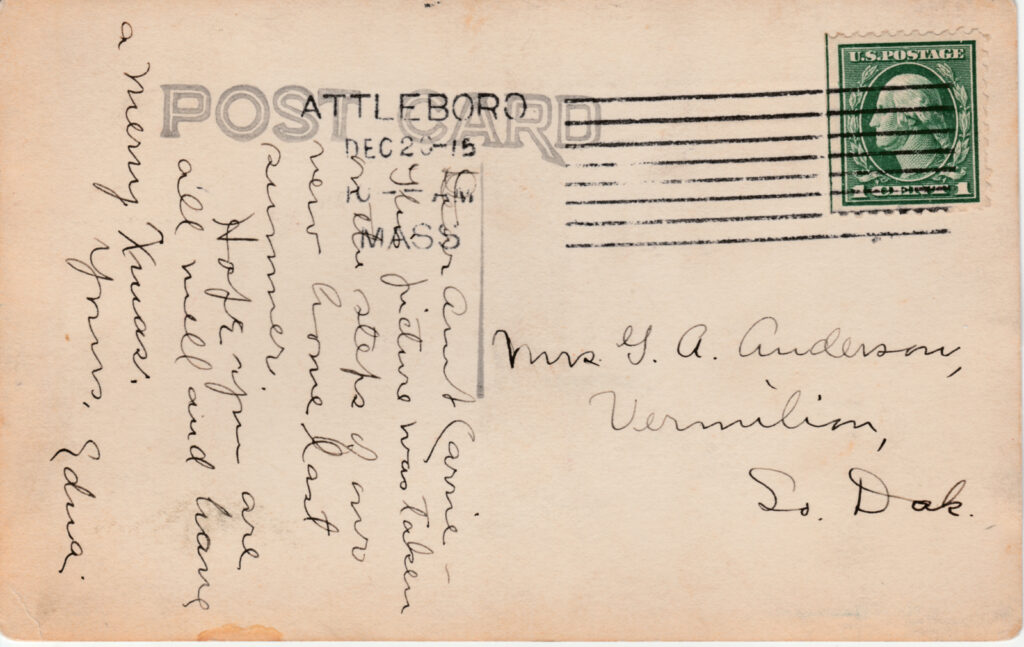 POST CARD
ATTLEBORO
DEC 20-15
AM
MASS
U.S. POSTAGE
1
Dear Aunt Carrie -
This picture was taken
on the steps of our
new home last
summer.
Hope you are
all well and have
a merry Xmas.
Yours, Edna.
Mrs. G. A. Anderson,
Vermilion,
So. Dak.